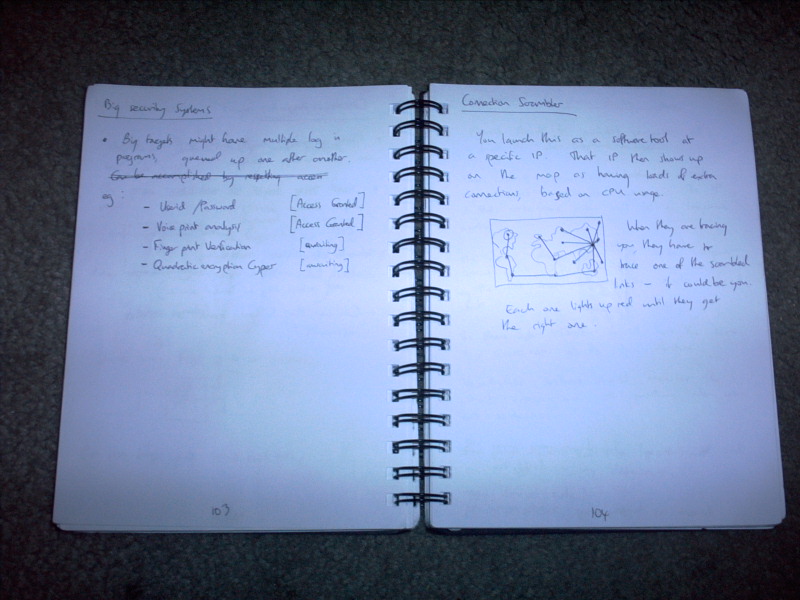 Big security Systems
• Big targets might have multiple log in
programs, queued up one after another.
Can be accomplished by repeating access
eg:
- Userid / Password [Access Granted]
- Voice print analysis [Access Granted]
- Finger print Verification [awaiting]
- Quadratic encryption Cyper [awaiting]
103
Connection Scrambler
You launch this as a software tool at
a specific IP. That IP then shows up
on the map as having loads of extra
connections, based on CPU usage.
When they are tracing
you, they have to
trace one of the scrambled
links - it could be you.
Each one lights up red until they get
the right one.
104